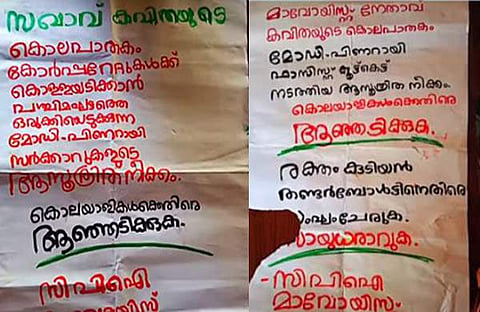 സഖാവ് കവിതയുടെ
കൊലപാതകം
കോർപ്പറേറ്റുകൾക്ക്
കൊള്ളയടിക്കാൻ
പശ്ചിമഘട്ടത്തെ
ഒരുക്കിയെടുക്കുന്ന
മോഡി-പിണറായി
സർക്കാറുകളുടെ
ആസൂത്രിത നീക്കം.
കൊലയാളികൾക്കെതിരെ
ആഞ്ഞടിക്കുക.
സിപിഐ
മാവോയിസ്റ്റ്
മാവോയിസ്റ്റ് നേതാവ്
കവിതയുടെ കൊലപാതകം
മോഡി-പിണറായി
ഫാസിസ്റ്റ് കൂട്ട്കെട്ട്
നടത്തിയ ആസൂത്രിത നീക്കം.
കൊലയാളികൾക്കെതിരെ
ആഞ്ഞടിക്കുക.
രക്തം കുടിയൻ
തണ്ടർബോൾട്ടിനെതിരെ
സംഘംചേരുക.
സായുധരാവുക.
-സിപിഐ
മാവോയിസ്റ്റ്